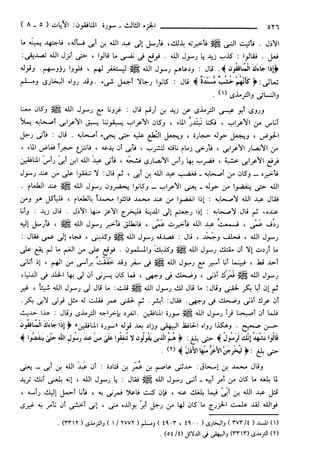 ٥٢٦ الجزء الثالث - سورة المنافقون: الآيات (٥ - ٨)
الأذل. فأتيت النبي ﷺ فأخبرته بذلك، فأرسل إلى عبد الله بن أبي فسأله، فاجتهد يمينه ما
فعل. فقالوا: كذب زيد يا رسول الله. فوقع في نفسي ما قالوا، حتى أنزل الله تصديقي:
﴿إِذَا جَاءَكَ الْمُنَافِقُونَ﴾. قال: ودعاهم رسول الله ﷺ ليستغفر لهم، فلووا رؤوسهم. وقوله
تعالى: ﴿كَأَنَّهُمْ خُشُبٌ مُسَنَّدَةٌ﴾ قال: كانوا رجالا أجمل شيء. وقد رواه البخاري ومسلم
والنسائي والترمذي (١).
وروى أبو عيسى الترمذي عن زيد بن أرقم قال: غزونا مع رسول الله ﷺ وكان معنا
أناس من الأعراب، فكنا نبتدر الماء، وكان الأعراب يسبقونا يسبق الأعرابي أصحابه يملأ
الحوض، ويجعل حوله حجارة، ويجعل النطع عليه حتى يجيء أصحابه. قال: فأتى رجل
من الأنصار الأعرابي، فأرخى زمام ناقته لتشرب، فأبى أن يدعه، فانتزع حجرا ففاض الماء،
فرفع الأعرابي خشبة، فضرب بها رأس الأنصاري فشجه، فأتى عبد الله بن أبي رأس المنافقين
فأخبره - وكان من أصحابه - فغضب عبد الله بن أبي، ثم قال: لا تنفقوا على من عند رسول
الله حتى ينفضوا من حوله - يعني الأعراب - وكانوا يحضرون رسول الله ﷺ عند الطعام.
فقال عبد الله لأصحابه: إذا انفضوا من عند محمد فائتوا محمدا بالطعام، فليأكل هو ومن
عنده، ثم قال لأصحابه: إذا رجعتم إلى المدينة فليخرج الأعز منها الأذل. قال زيد: وأنا
ردف عمي، فسمعت عبد الله فأخبرت عمي، فانطلق فأخبر رسول الله ﷺ، فأرسل إليه
رسول الله، فحلف وجحد، قال: فصدقه رسول الله ﷺ وكذبني، فجاء إلي عمي فقال:
ما أردت إلا أن مقتك رسول الله ﷺ وكذبك والمسلمون. فوقع علي من الغم ما لم يقع على
أحد قط، فبينما أنا أسير مع رسول الله ﷺ في سفر وقد خفقت برأسي من الهم، إذ أتاني
رسول الله ﷺ فعرك أذني، وضحك في وجهي، فما كان يسرني أن لي بها الخلد في الدنيا،
ثم إن أبا بكر لحقني وقال: ما قال لك رسول الله ﷺ؟ قلت: ما قال لي رسول الله شيئا، غير
أن عرك أذني وضحك في وجهي. فقال: أبشر. ثم لحقني عمر فقلت له مثل قولي لأبي بكر.
فلما أن أصبحنا قرأ رسول الله ﷺ سورة المنافقين. انفرد بإخراجه الترمذي وقال: هذا حديث
حسن صحيح. وهكذا رواه الحافظ البيهقي وزاد بعد قوله «سورة المنافقين» ﴿إِذَا جَاءَكَ الْمُنَافِقُونَ
قَالُوا نَشْهَدُ إِنَّكَ لَرَسُولُ اللَّهِ﴾ حتى بلغ: ﴿هُمُ الَّذِينَ يَقُولُونَ لَا تُنْفِقُوا عَلَى مَنْ عِنْدَ رَسُولِ اللَّهِ حَتَّى يَنْفَضُّوا﴾
حتى بلغ: ﴿لَيُخْرِجَنَّ الْأَعَزُّ مِنْهَا الْأَذَلَّ﴾ (٢).
وقال محمد بن إسحاق: حدثني عاصم بن عمر بن قتادة: أن عبد الله بن أبي - يعني
لما بلغه ما كان من أمر أبيه - أتى رسول الله ﷺ فقال: يا رسول الله، إنه بلغني أنك تريد
قتل عبد الله بن أبي فيما بلغك عنه، فإن كنت فاعلا فمرني به، فأنا أحمل إليك رأسه،
فوالله لقد علمت الخزرج ما كان لها من رجل أبر بوالده مني، إني أخشى أن تأمر به غيري
(١) المسند (٤/ ٣٧٣) والبخاري (٤٩٠٠ - ٤٩٠٣) ومسلم (١/ ٢٧٧٢) والترمذي (٣٣١٢).
(٢) الترمذي (٣٣١٣) والبيهقي في الدلائل (٤/ ٥٤)